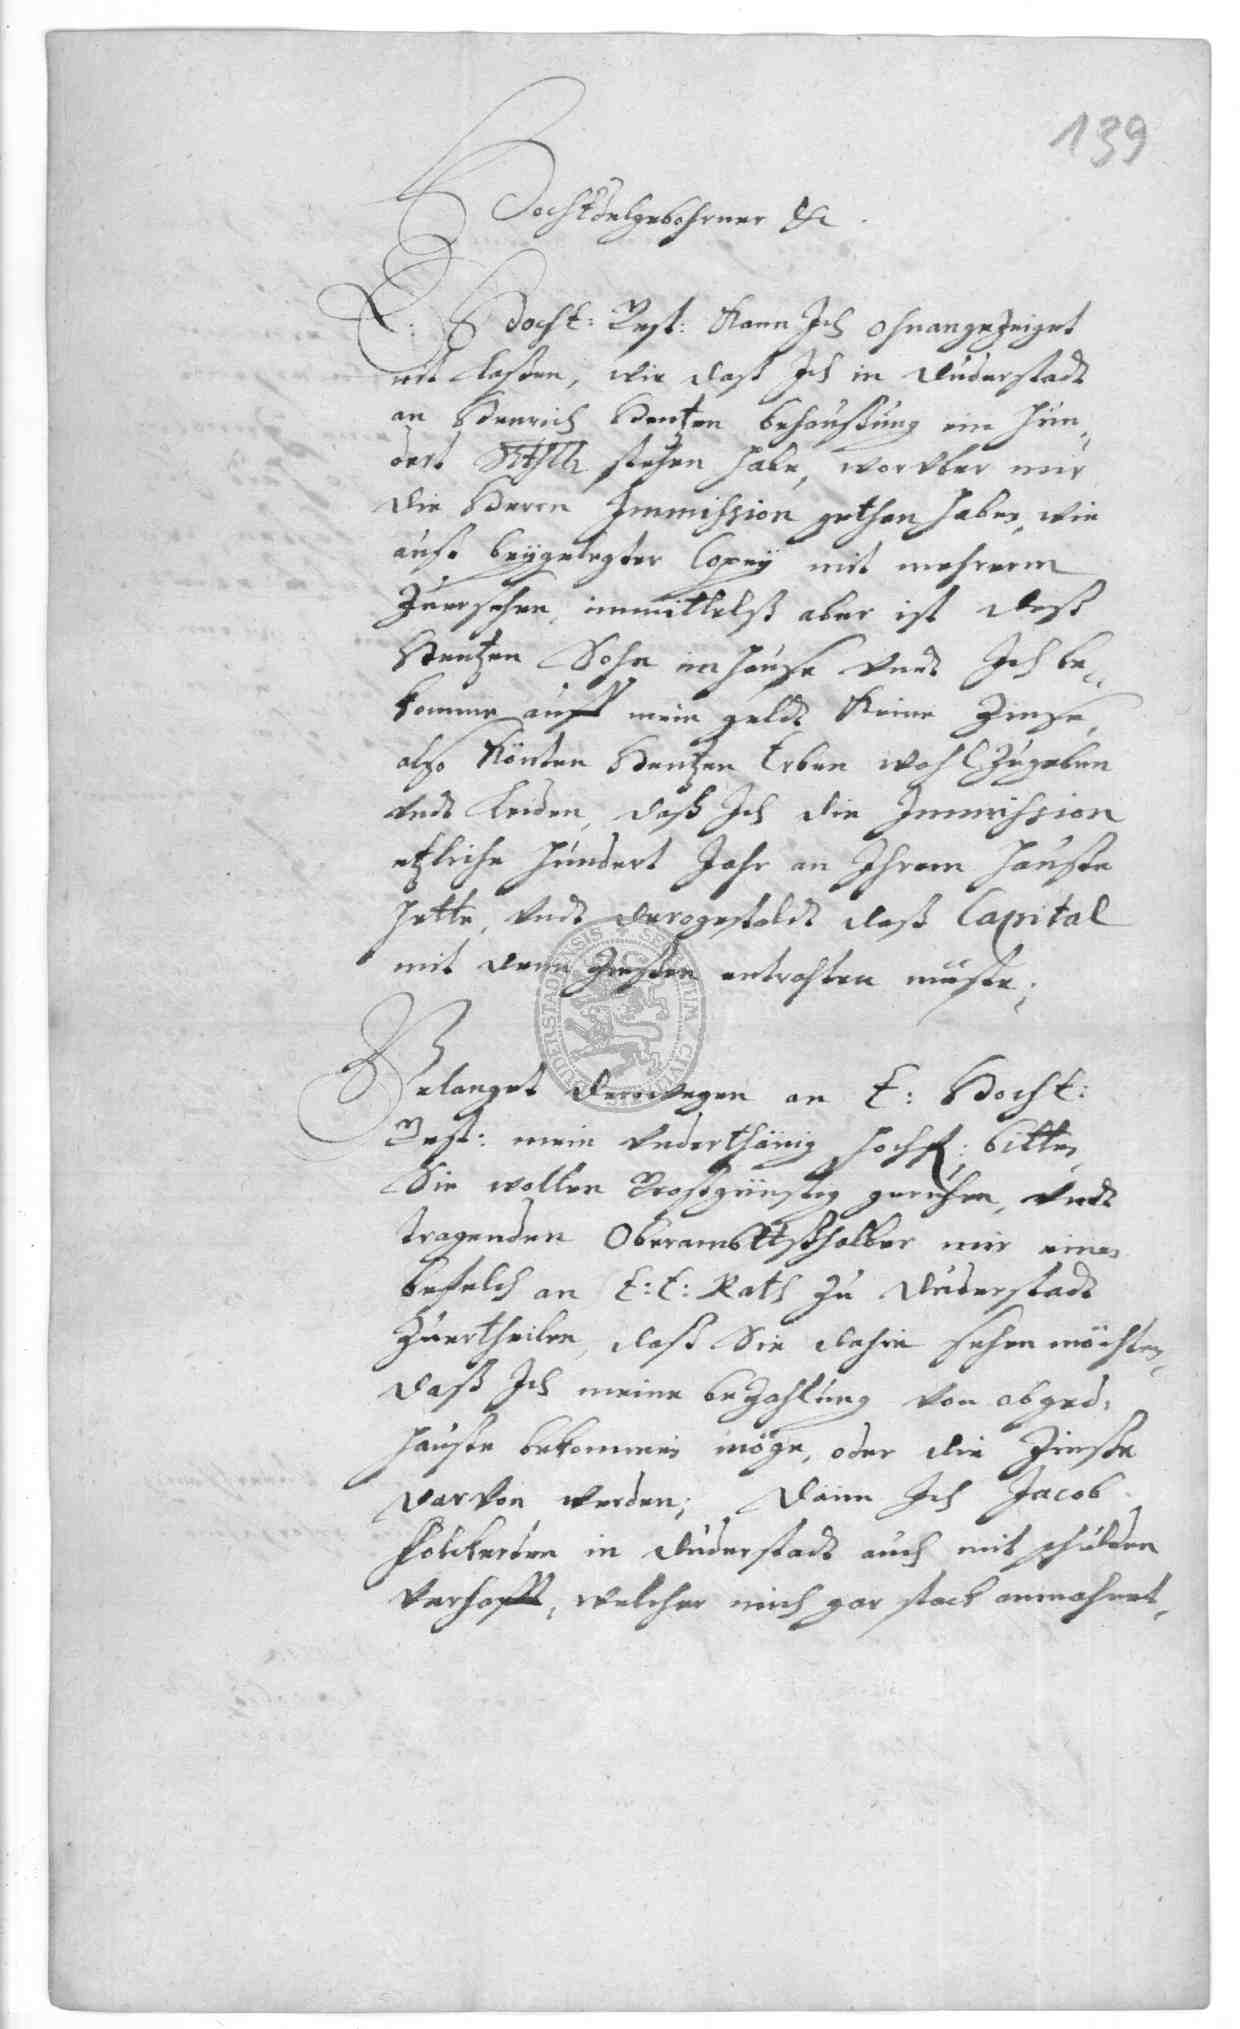 139
HochEdelgebohrner &c.
E: HochE: Vest: kann Ich ohnangezeiget
nit laßen, wie daß Ich in Duderstadt
an Henrich Hentzen behaußung ein hun„
dert Rthlr stehen habe, worvber mir
die Herrn Immission gethan haben, wie
auß beygelegter Copey mit mehrerm
Zuersehen, immittelß aber ist deß
Hentzen Sohn im hause vndt Ich be„
komme auff mein geldt keine Zinse,
also könten Hentzen Erben wohl Zugeben
vndt leiden, daß Ich die Immission
etzliche hundert Jahr an Ihrem hauße
hette, vndt dergestaldt daß Capital
mit denn Zinßen entrahten müste;
Gelanget derowegen an E: HochE:
Vest: mein vnderthänig hochfl: bitten,
Sie wollen Großgünstig geruhen, vndt
tragenden Oberambttßhalber mir einen
befelch an E: E: Rath Zu Duderstadt
Zuertheilen, daß Sie dahin sehen möchten,
daß Ich meine beZahlung von obged:
hauße bekommen möge, oder die Zinße
darvon werden; Dann Ich Jacob
Folckerden in Duderstadt auch mit schulden
verhafft, welcher mich gar starck anmahnet,